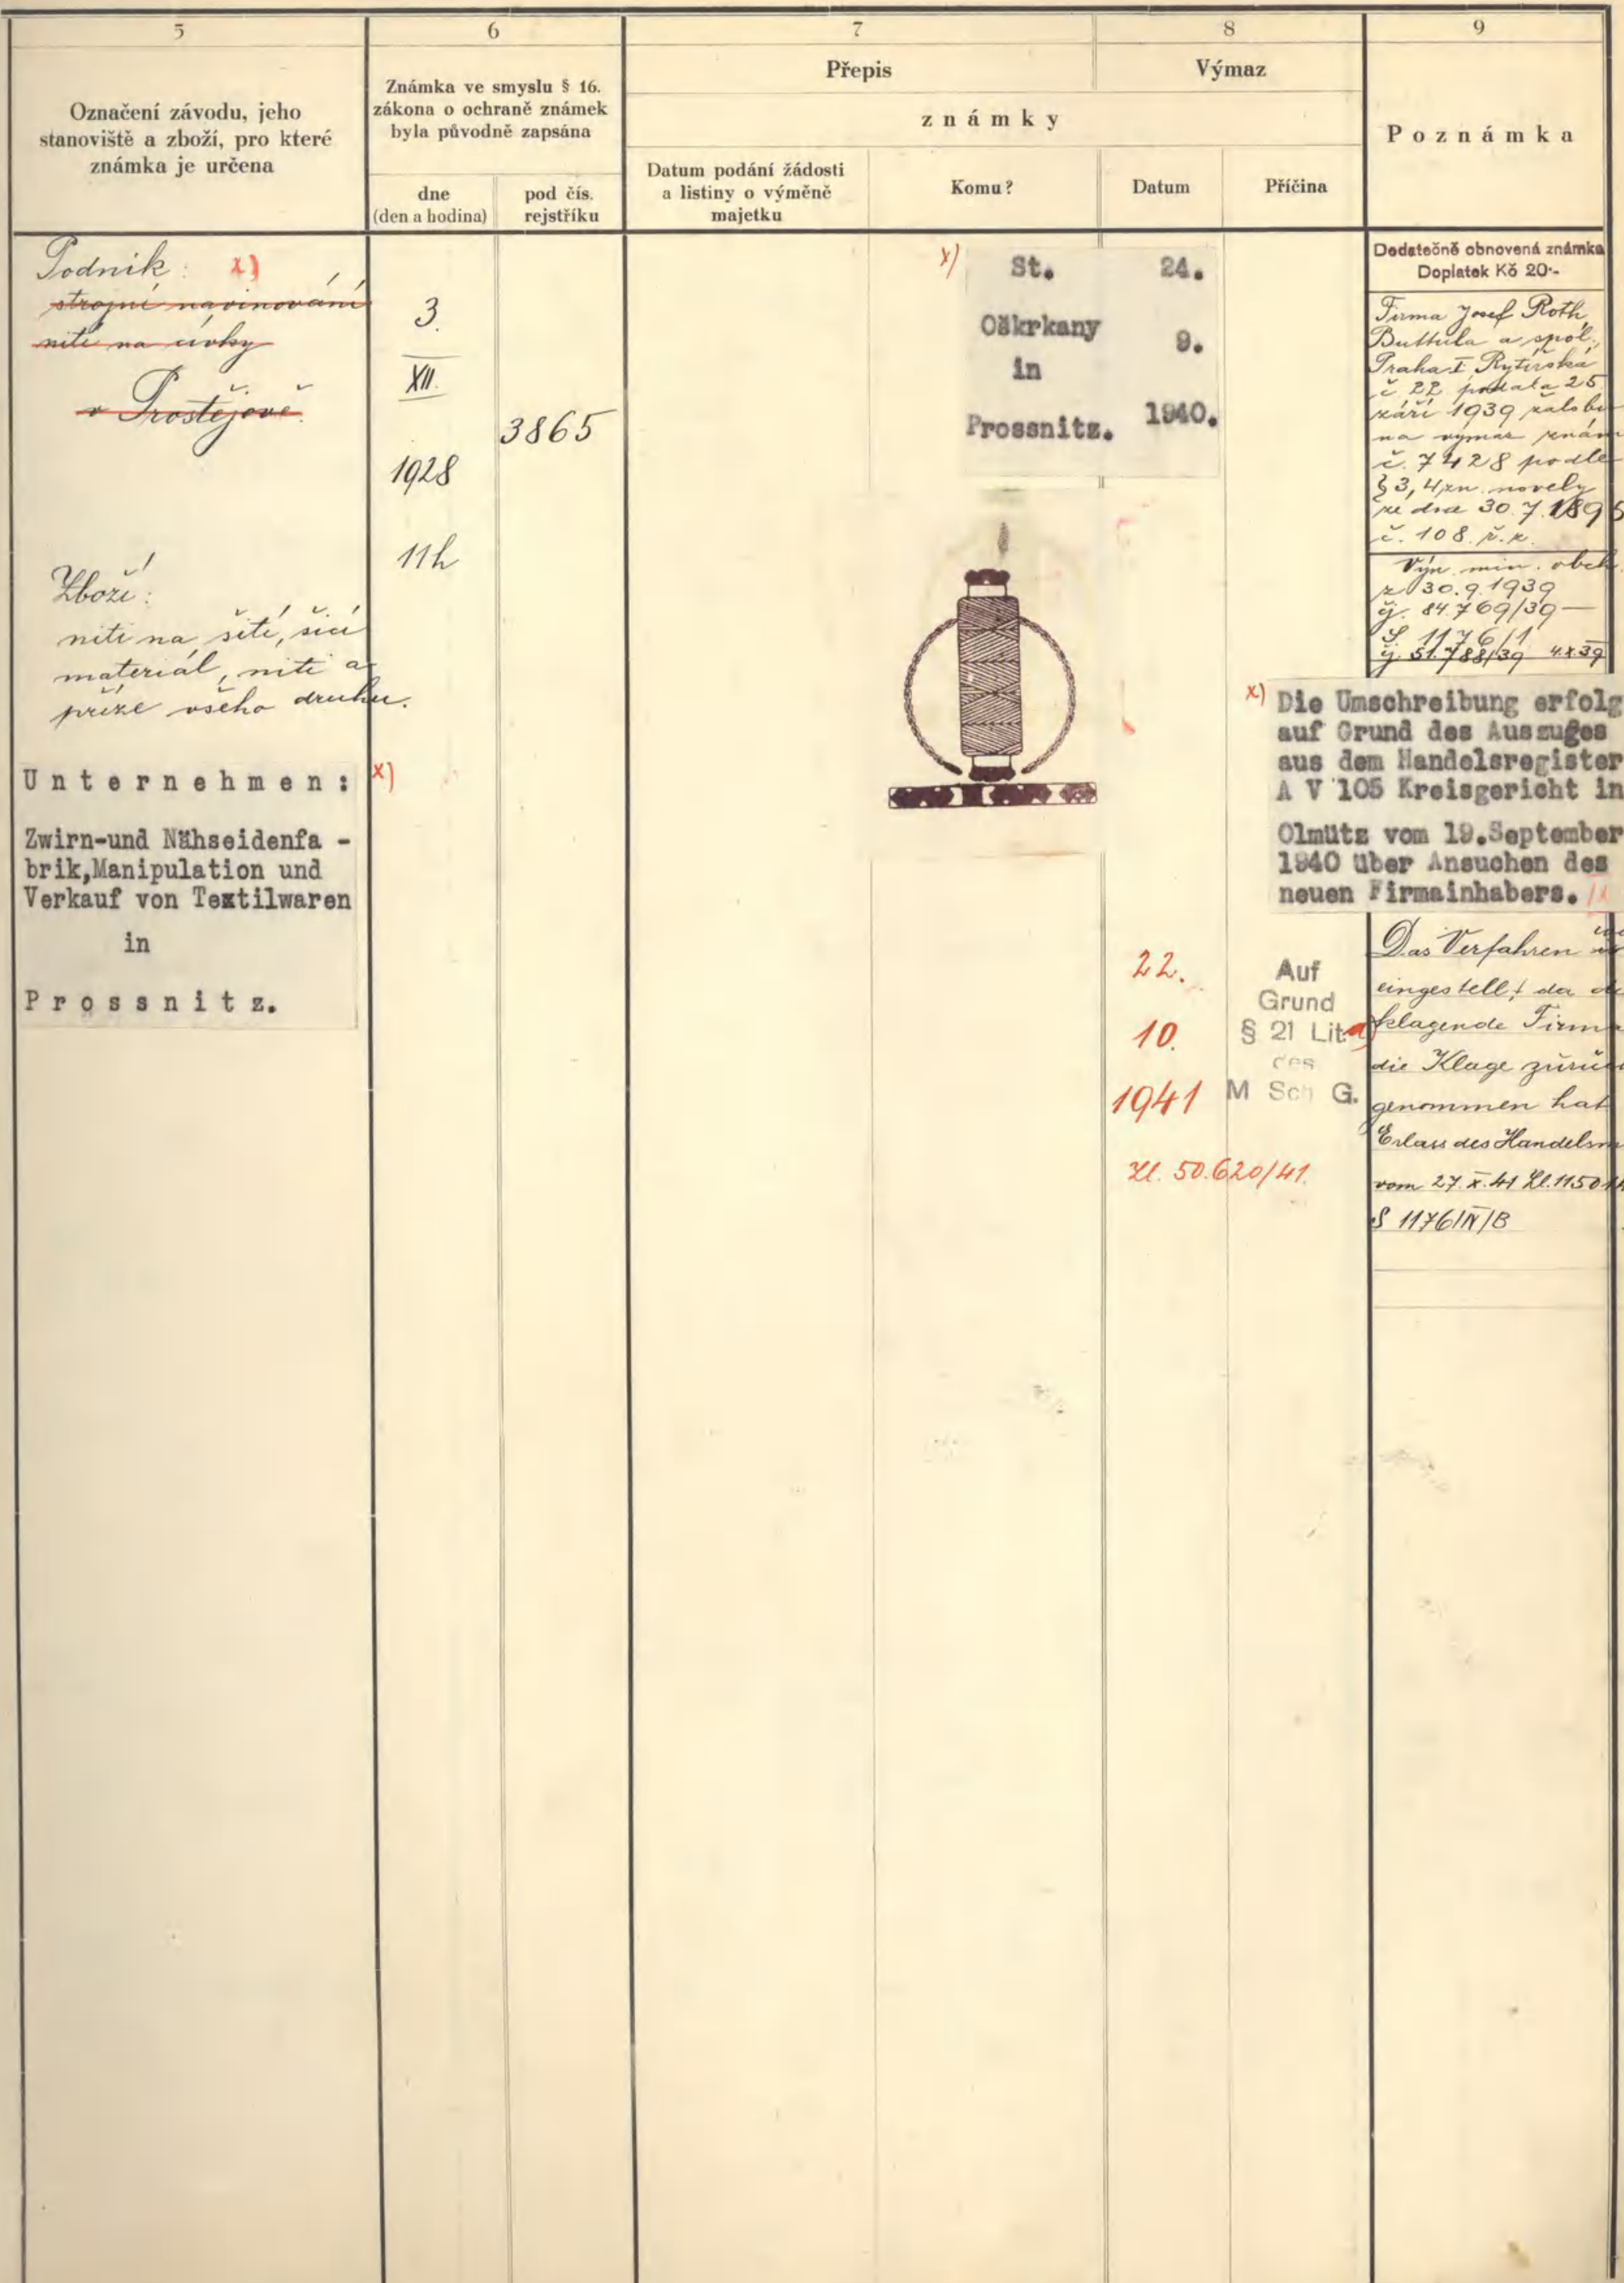 5
6
7
8
9
Označení závodu, jeho
stanoviště a zboží, pro které
známka je určena
Známka ve smyslu § 16.
zákona o ochraně známek
byla původně zapsána
dne
(den a hodina)
pod čís.
rejstříku
Přepis
Výmaz
známky
Datum podání žádosti
a listiny o výměně
majetku
Komu?
Datum
Příčina
Poznámka
Podnik: x)
strojní navinování
nití na cívky
v Prostějově.
Zboží:
niti na šití, šicí
materiál, niti a
příze všeho druhu.
Unternehmen: x)
Zwirn-und Nähseidenfa -
brik,Manipulation und
Verkauf von Textilwaren
in
Prossnitz.
3.
XII.
1928
11h
3865
x) St. 24.
Oškrkany 9.
in
Prossnitz. 1940.
22.
10.
1941
Zl. 50.620/41.
Auf
Grund
§ 21 Lit. a)
des
M Sch G.
Dodatečně obnovená známka
Doplatek Kč 20·-
Firma Josef Roth,
Buttula a spol.,
Praha I Rytířská
č 22 podala 25.
září 1939 žalobu
na výmaz znám
č. 7428 podle
§ 3, 4 zn. novely
ze dne 30.7.1895
č. 108 ř.z.
Výn. min. obch.
z 30.9.1939
čj. 84.769/39 —
S 1176/1
čj. 51.788/39 4.X.39
x) Die Umschreibung erfolg
auf Grund des Auszuges
aus dem Handelsregister
A V 105 Kreisgericht in
Olmütz vom 19.September
1940 über Ansuchen des
neuen Firmainhabers.
Das Verfahren
eingestellt da
klagende Firma
die Klage zurück
genommen hat
Erlass des Handelsm
vom 27.X.41 Zl. 1150
S 1176/IV/B